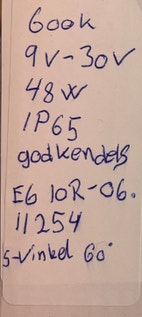 600K
9V-30V
48W
IP65
godkendels
E6 10R-06.
11254
S-Vinkel 60°